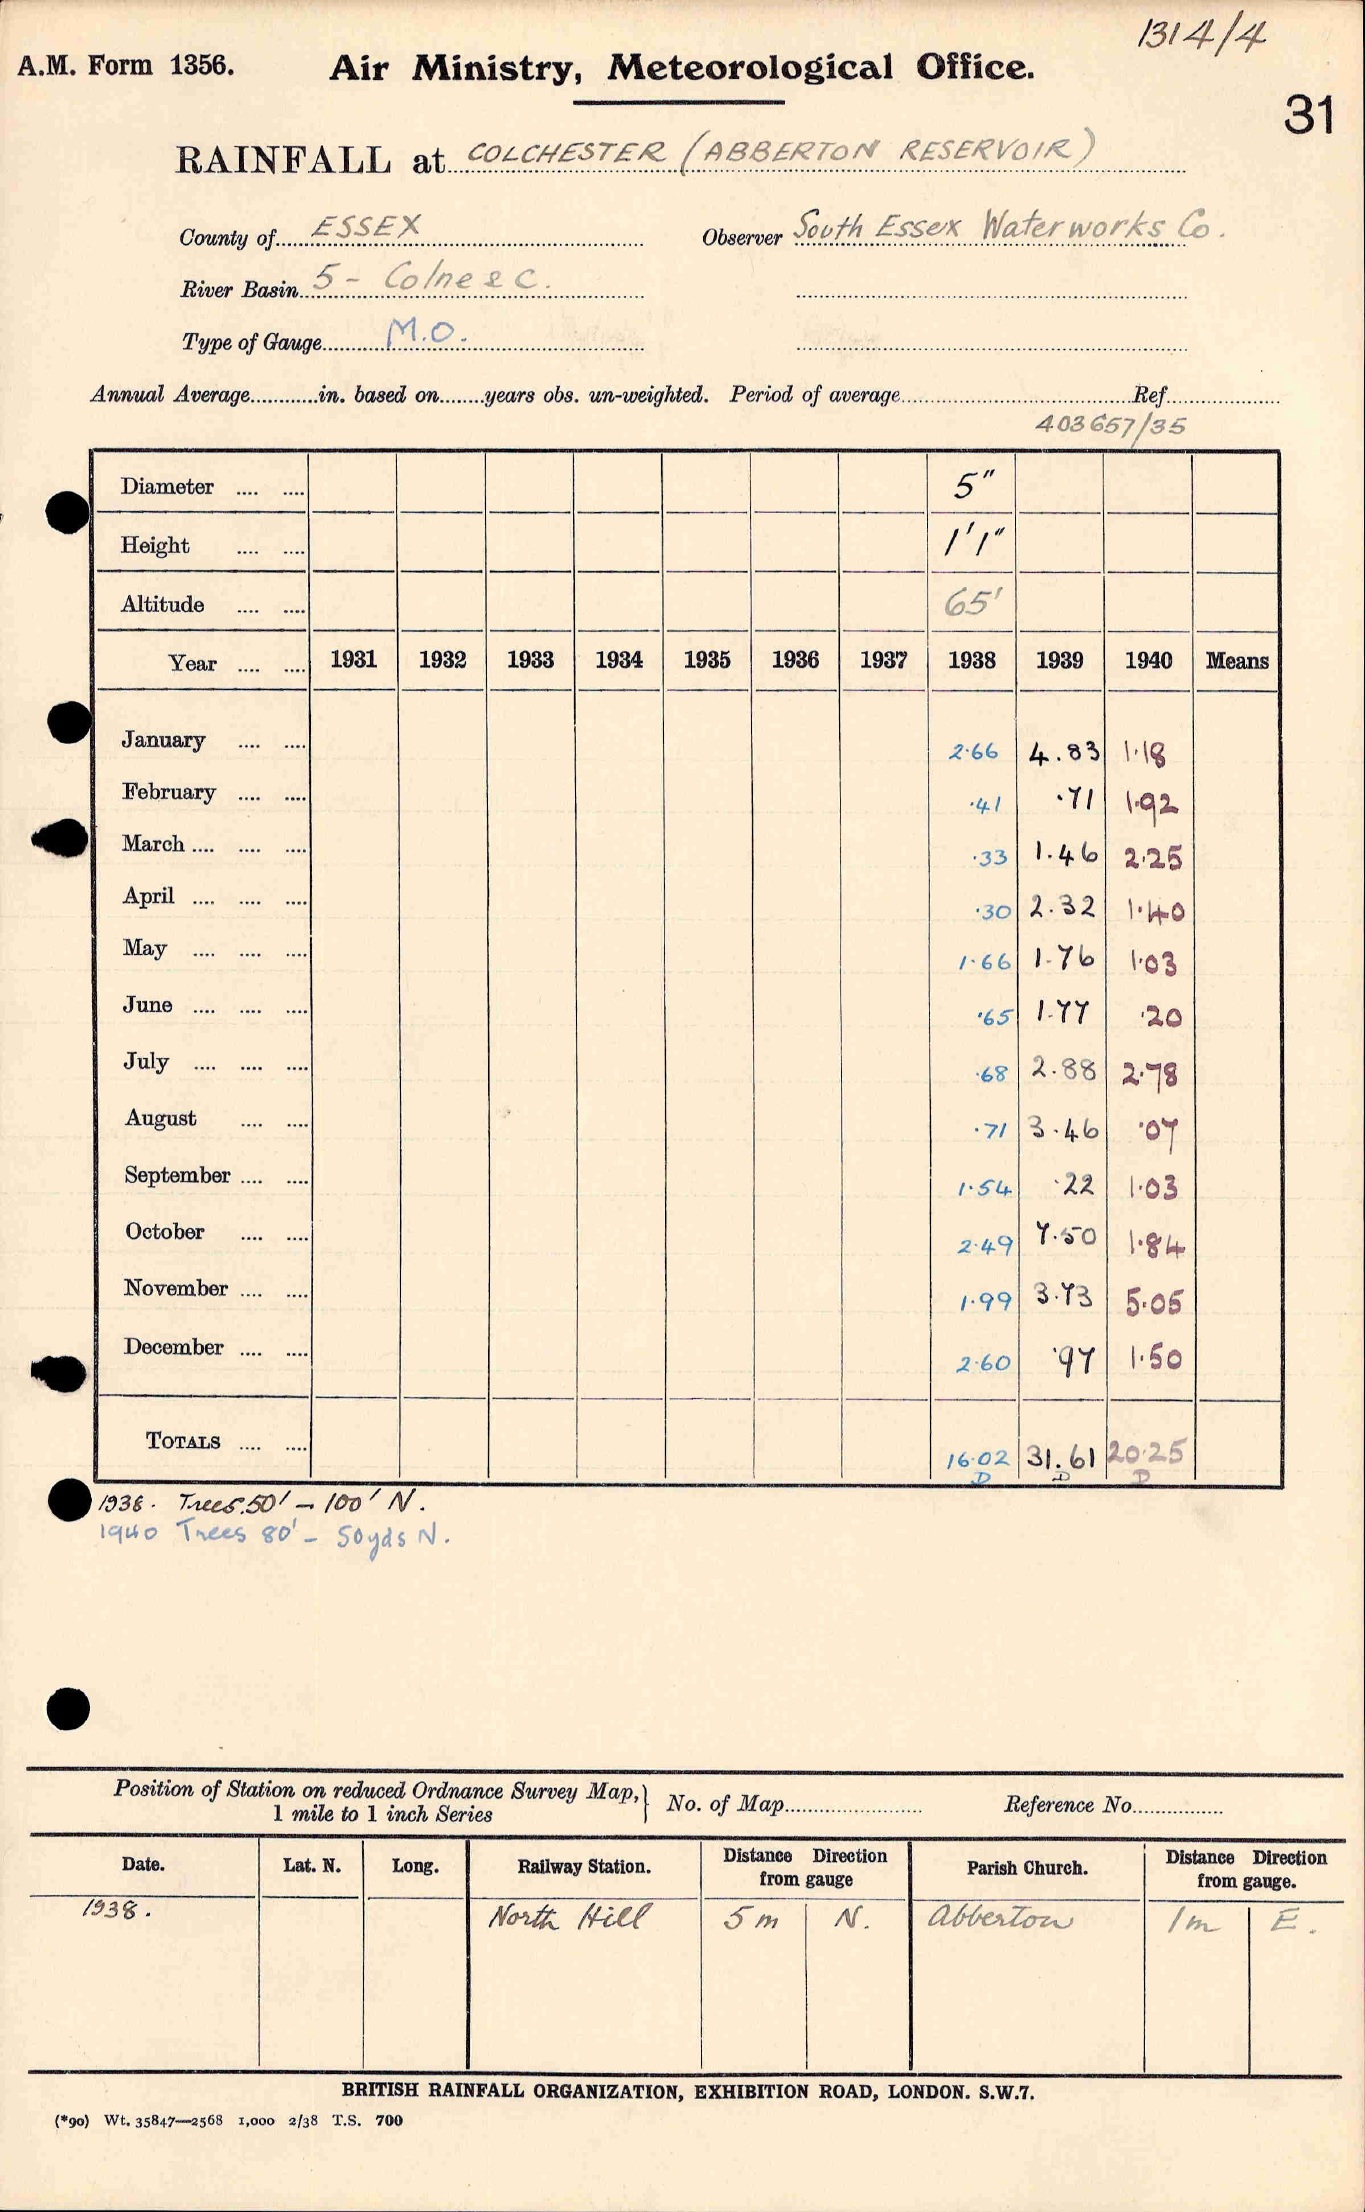 1314/4
A.M. Form 1356. Air Ministry, Meteorological Office.
31
RAINFALL at COLCHESTER (ABBERTON RESERVOIR)
County of ESSEX Observer South Essex Waterworks Co.
River Basin 5 - Colne & C.
Type of Gauge M.O.
Annual Average............in. based on........years obs. un-weighted. Period of average.............Ref.............
403657/35
Diameter .... .... 5"
Height .... .... 1'1"
Altitude .... .... 65'
Year .... .... 1931 1932 1933 1934 1935 1936 1937 1938 1939 1940 Means
January .... .... 2.66 4.83 1.18
February .... .... .41 .71 1.92
March .... .... .... .33 1.46 2.25
April .... .... .... .30 2.32 1.40
May .... .... .... 1.66 1.76 1.03
June .... .... .... .65 1.77 .20
July .... .... .... .68 2.88 2.78
August .... .... .71 3.46 .07
September .... .... 1.54 .22 1.03
October .... .... 2.49 7.50 1.84
November .... .... 1.99 3.73 5.05
December .... .... 2.60 .97 1.50
TOTALS .... .... 16.02 31.61 20.25
D D D
1938. Trees 50' - 100' N.
1940 Trees 80' - 50yds N.
Position of Station on reduced Ordnance Survey Map, 1 mile to 1 inch Series } No. of Map........................ Reference No................
Date. Lat. N. Long. Railway Station. Distance Direction from gauge Parish Church. Distance Direction from gauge.
1938. North Hill 5 m N. Abberton 1m E.
BRITISH RAINFALL ORGANIZATION, EXHIBITION ROAD, LONDON. S.W.7.
(*90) Wt. 35847—2568 1,000 2/38 T.S. 700